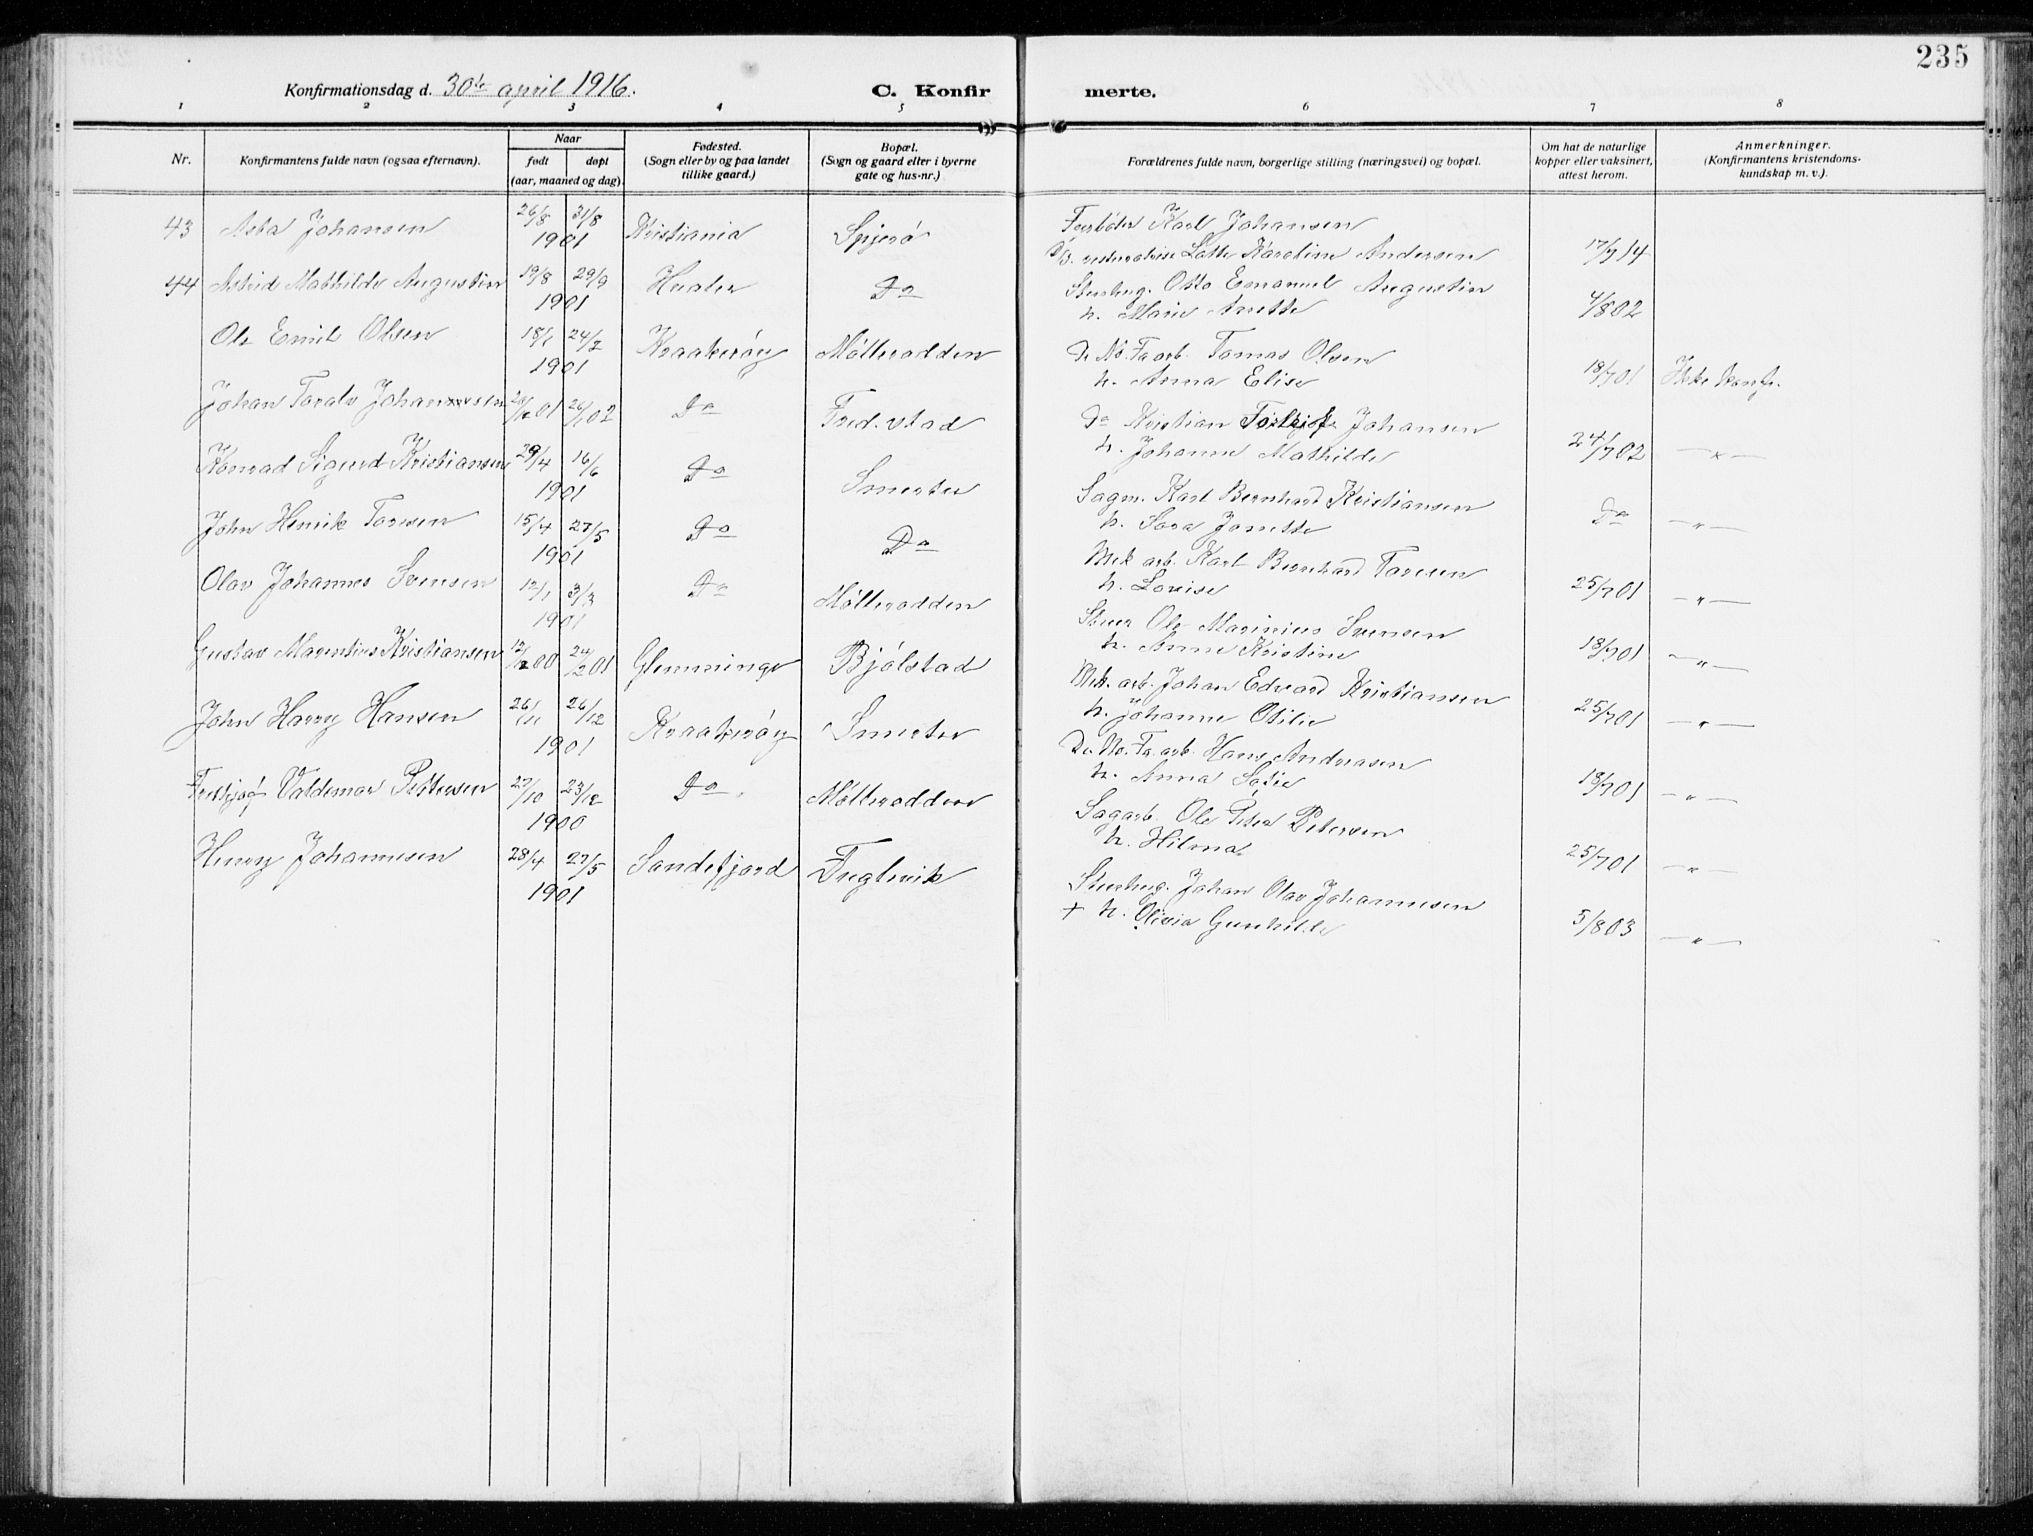 235
Konfirmationsdag d. 30te april 1916. C. Konfirmerte.
1 2 3 4 5 6 7 8
Nr.
Konfirmantens fulde navn (ogsaa efternavn).
Naar
født døpt
(aar, maaned og dag).
Fødested.
(Sogn eller by og paa landet
tillike gaard.)
Bopæl.
(Sogn og gaard eller i byerne
gate og hus-nr.)
Forældrenes fulde navn, borgerlige stilling (næringsvei) og bopæl.
Om hat de naturlige
kopper eller vaksinert,
attest herom.
Anmerkninger.
(Konfirmantens kristendoms-
kundskap m. v.).
43 Asta Johansen 26/8 31/8 1901 Kristiania Spjærø
Karl Johansen
Lotte Karoline Andersen 17/9 14
44 Astrid Mathilde Augustin 19/8 29/9 1901 Hvaler Do
Stenhug. Otto Emanuel Augustin
h. Marie Anette 4/8 02
Ole Emil Olsen 18/1 24/2 1901 Kraakerøy Mølleradden
De No. Fa arb. Tomas Olsen
h. Anna Elise 18/7 01 Ikke konf.
Johan Toralv Johannesen 01 26/1 02 Do Fred.stad
Do Kristian Johansen
h. Johanne Mathilde 24/7 02 — " —
Konrad Sigurd Kristiansen 29/4 16/6 1901 Do Smerter
Sagm. Karl Bernhard Kristiansen
h. Sara Janette Do — " —
John Henrik Toresen 15/4 27/5 1901 Do Do
Mek arb. Karl Bernhard Toresen
h. Lovise 25/7 01 — " —
Olav Johannes Svensen 12/1 3/3 1901 Do Mølleradden
Stuer Ole Marinius Svensen
h. Anne Kristine 18/7 01 — " —
Gustav Marentius Kristiansen 12/12 00 24/2 01 Glemminge Bjølstad
Mek. arb. Johan Edvard Kristiansen
h. Johanne Otilie 25/7 01 — " —
John Harry Hansen 26/11 26/12 1901 Kraakerøy Smerter
De No. Fa. arb. Hans Andreasen
h. Anna Sofie 18/7 01 — " —
Fritjof Valdemar Pettersen 27/10 23/12 1900 Do Mølleradden
Sagarb. Ole Petersen
h. Hilma 25/7 01 — " —
Henry Johannesen 28/4 27/5 1901 Sandefjord Fuglevik
Stenhug. Johan Olav Johannesen
+ h. Olivia Gunhilde 5/8 03 — " —